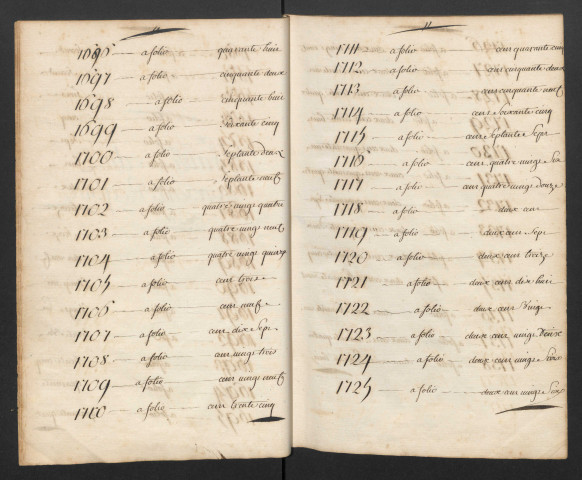 1696 a folio quarante huit
1697 a folio cinquante deux
1698 a folio cinquante huit
1699 a folio soixante cinq
1700 a folio septante deux
1701 a folio septante neuf
1702 a folio quatre vingt quatre
1703 a folio quatre vingt neuf
1704 a folio quatre vingt quinze
1705 a folio cent trois
1706 a folio cent neuf
1707 a folio cent dix sept
1708 a folio cent vingt trois
1709 a folio cent vingt neuf
1710 a folio cent trente cinq
1711 a folio cent quarante cinq
1712 a folio cent cinquante deux
1713 a folio cent cinquante neuf
1714 a folio cent soixante cinq
1715 a folio cent septante sept
1716 a folio cent quatre vingt six
1717 a folio cent quatre vingt douze
1718 a folio deux cent
1719 a folio deux cent sept
1720 a folio deux cent treize
1721 a folio deux cent dix huit
1722 a folio deux cent vingt
1723 a folio deux cent vingt deux
1724 a folio deux cent vingt
1725 a folio deux cent vingt